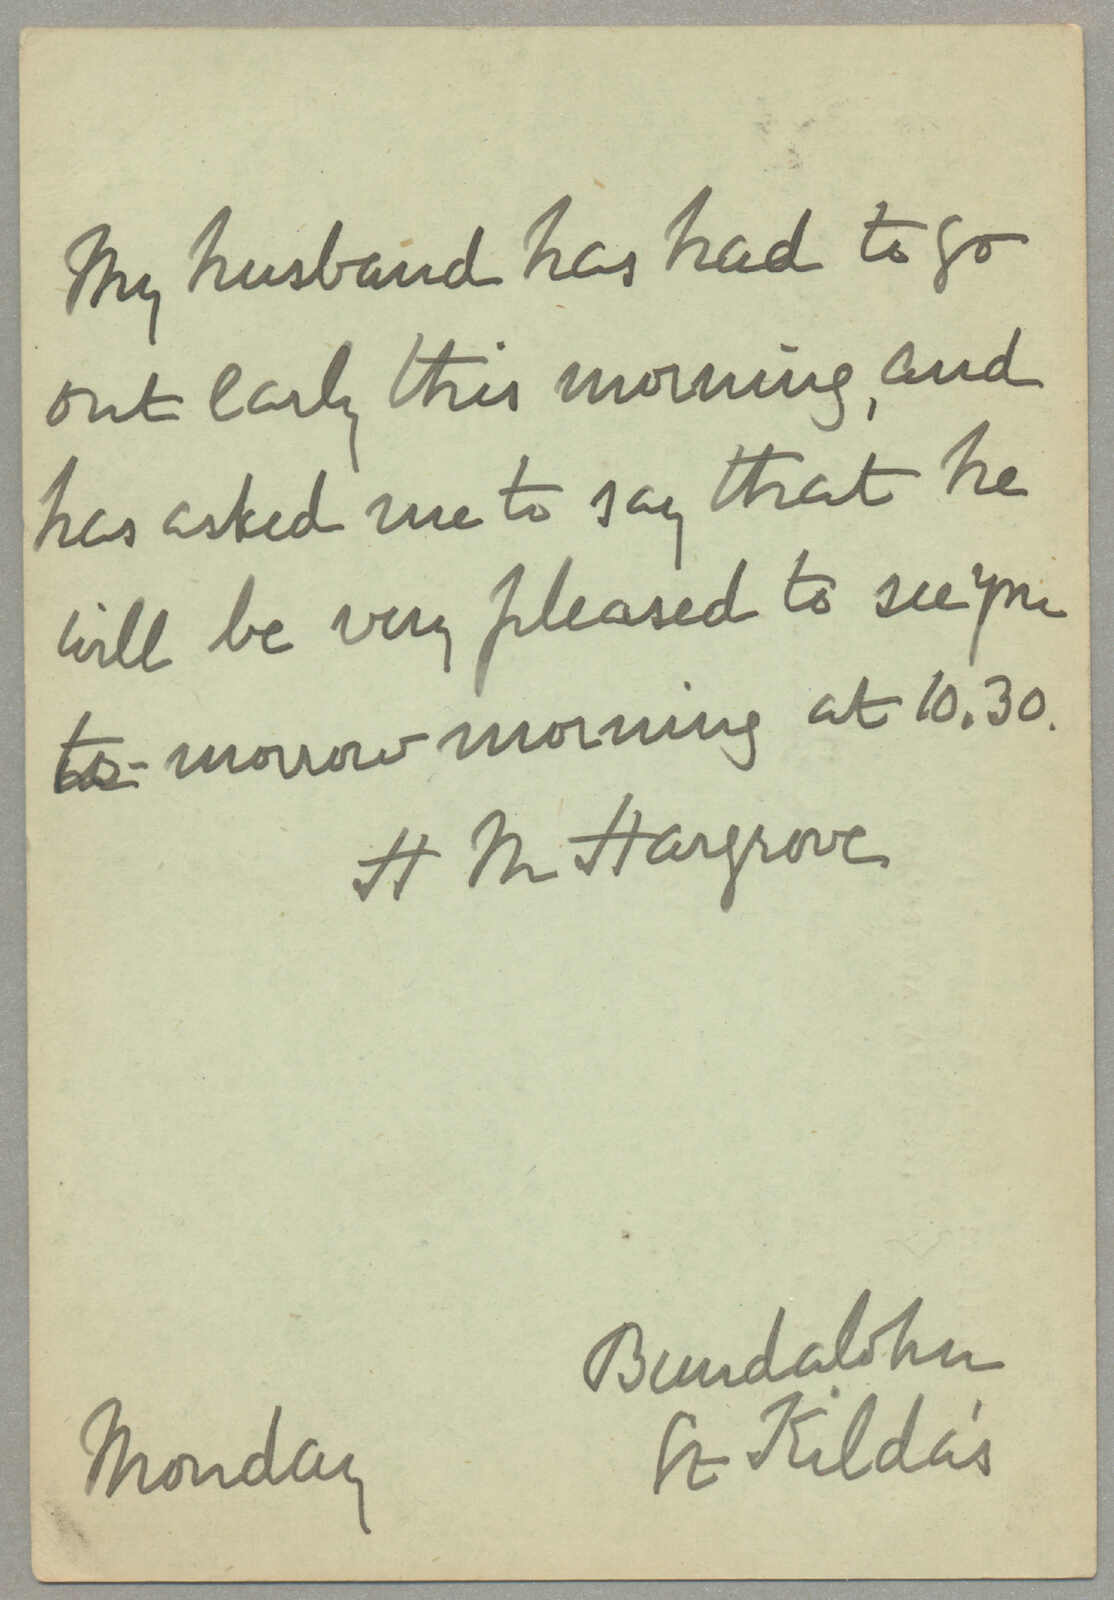 My husband has had to go
out early this morning, and
has asked me to say that he
will be very pleased to see you
to-morrow morning at 10.30.
H M Hargrove
Bundalohn
St Kilda's
Monday